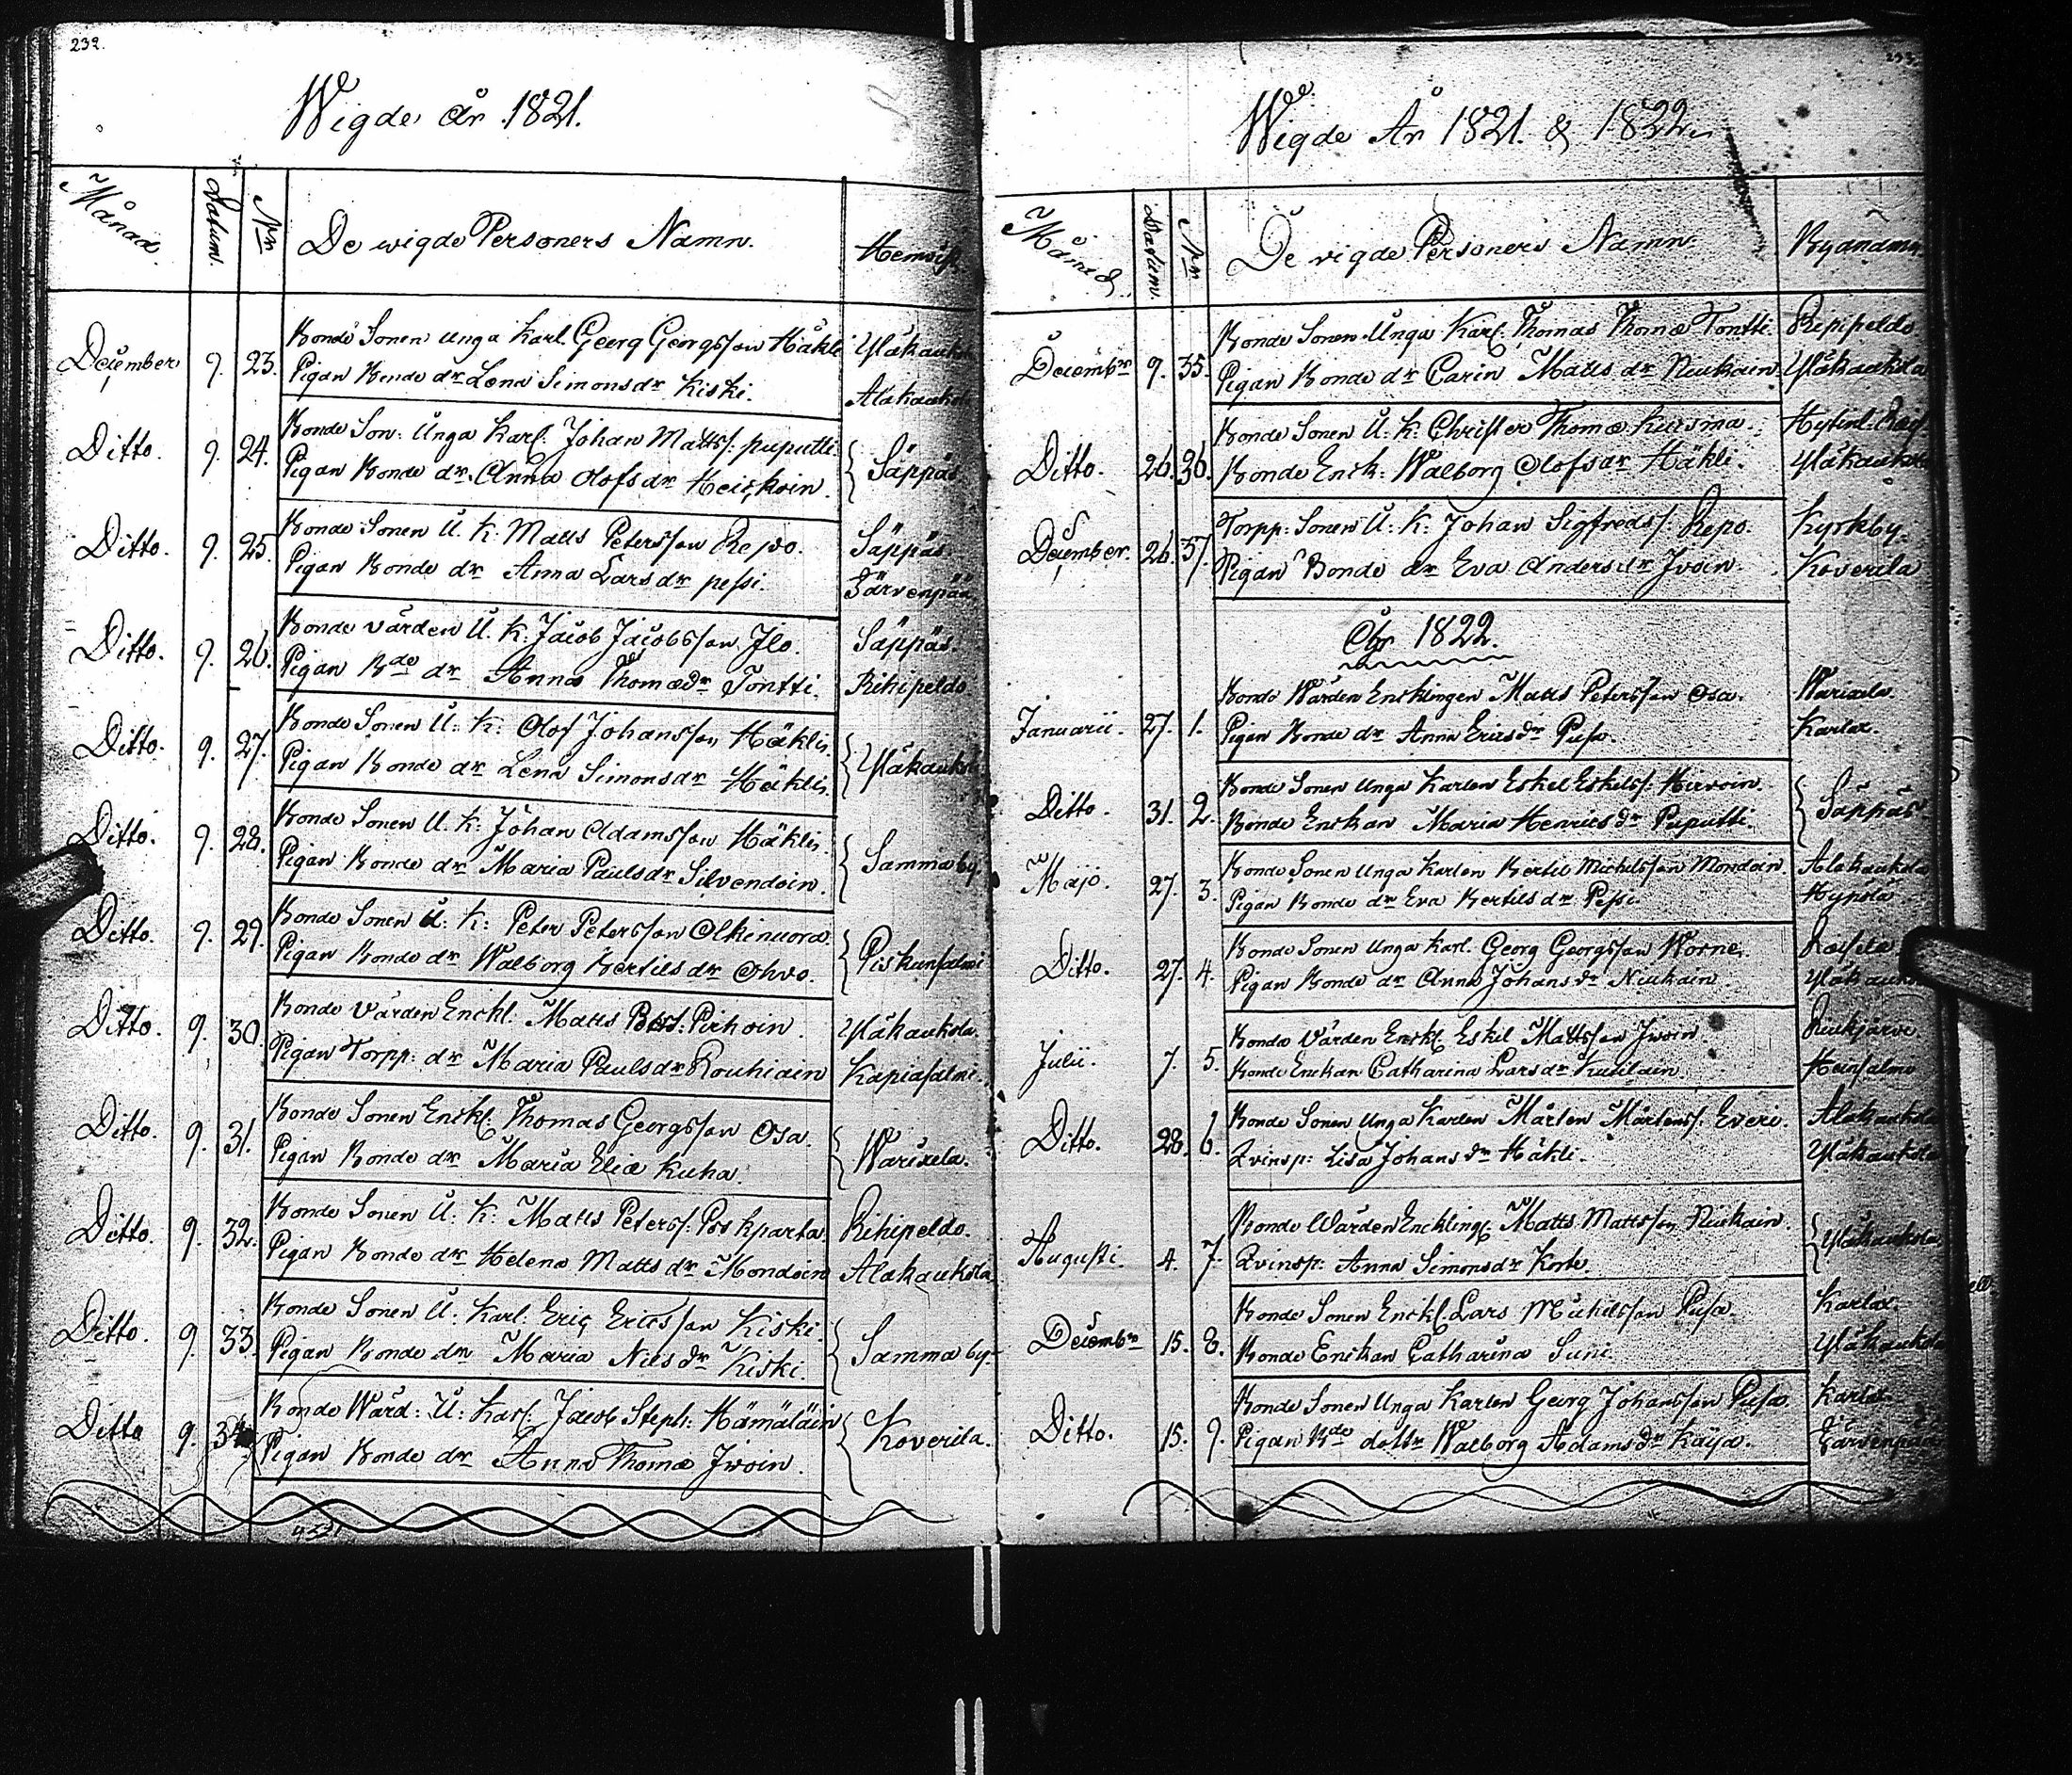 232.
Wigde år 1821.
Månad. Datum. Nrn De wigde Personers Namn. Hemvist
December 9. 23. Bonde Sonen unga Karl. Georg Georgsson Häkli Yläkaukola
Pigan Bonde dr Lena Simonsdr Kiski. Alakaukola
Ditto. 9. 24. Bonde Son: Unga Karl: Johan Matts: puputti
Pigan Bonde dr. Anna Olofsdr Heiskoin. Säppäs
Ditto. 9. 25. Bonde Sonen U. K: Matts Petersson Repo. Säppäs
Pigan Bonde dr Anna Larsdr pessi. Järvenpää
Ditto. 9. 26. Bonde värden U. K: Jacob Jacobsson Ilo. Säppäs.
Pigan Bde dr Anna Thomædr Tontti. Rihipeldo
Ditto. 9. 27. Bonde Sonen U. K: Olof Johansson Häkli.
Pigan Bonde dr Lena Simonsdr Häkli. Yläkaukola
Ditto. 9. 28. Bonde Sonen U. K: Johan Adamsson Häkli.
Pigan Bonde dr Maria Paulsdr Silvendoin. Samma by
Ditto. 9. 29. Bonde Sonen U: K: Peter Petersson Olkinuora.
Pigan Bonde dr Walborg Bertilsdr Ohvo. Piskunsalmi
Ditto. 9. 30. Bonde värden Enckl. Matts Pirhoin. Yläkaukola.
Pigan Torpp: dr Maria Paulsdr Rouhiain Kapiasalmi.
Ditto. 9. 31. Bonde Sonen Enckl. Thomas Georgsson Osa.
Pigan Bonde dr Maria Eliæ Kuha. Warixela.
Ditto. 9. 32. Bonde Sonen U: K: Matts Peters: Poskparta. Rihipeldo.
Pigan Bonde dr Helena Matts dr Mondoin Alakaukola
Ditto. 9. 33. Bonde Sonen U. Karl. Eric Ericsson Kiski.
Pigan Bonde dr Maria Nils dr Kiski. Samma by.
Ditto 9. 34. Bonde Wärd: U: Karl: Jacob Steph: Hämäläin
Pigan Bonde dr Anna Thomæ Jwoin. Koverila.
233.
Wigde År 1821. & 1822.
Månad. Datum. Nrn De vigde Personers Namn. Byanamn.
Decembr 9. 35. Bonde Sonen Unga Karl. Thomas Thomæ Tontti.
Pigan Bonde dr Carin Matts dr Niukain Yläkaukola
Ditto. 26. 36. Bonde Sonen U: K: Christer Thomæ Kuisma.
Bonde Enck: Walborg Olofsdr Häkli. Yläkaukola
December. 26. 37. Torpp: Sonen U: K: Johan Sigfreds: Repo. Kyrkby.
Pigan Bonde dr Eva Andersdr Jvoin. Koverila
År 1822.
Januarii. 27. 1. Bonde Wärden Encklingen Matts Petersson Osa. Warixela.
Pigan Bonde dr Anna Ericsdr Pusa. Karlax.
Ditto. 31. 2. Bonde Sonen Unga Karlen Eskel Eskels: Hirvoin.
Bonde Enckan Maria Henricsdr Puputti. Säppäs
Majo. 27. 3. Bonde Sonen Unga Karlen Bertil Michelsson Mondoin. Alakaukola
Pigan Bonde dr Eva Bertils dr Pessi.
Ditto. 27. 4. Bonde Sonen Unga Karl. Georg Georgsson Worne.
Pigan Bonde dr Anna Johansdr Niukain. Yläkaukola
Julii. 7. 5. Bonde Värden Enckl. Eskel Mattsson Jwoin.
Bonde Enckan Catharina Larsdr Kuisilain.
Ditto. 28. 6. Bonde Sonen Unga Karlen Mårten Mårtens: Everi. Alakaukola
Qvinsp: Lisa Johansdr Häkli. Yläkaukola
Augusti. 4. 7. Bonde Wärden Enckling: Matts Mattsson Niukain.
Qvinsp: Anna Simonsdr Korte. Yläkaukola
Decembr 15. 8. Bonde Sonen Enckl. Lars Michelsson Pusa. Karlax.
Bonde Enckan Catharina Suni. Yläkaukola
Ditto. 15. 9. Bonde Sonen Unga Karlen Georg Johansson Pusa. Karlax
Pigan Bde dottr Walborg Adamsdr Käyä. Järvenpää